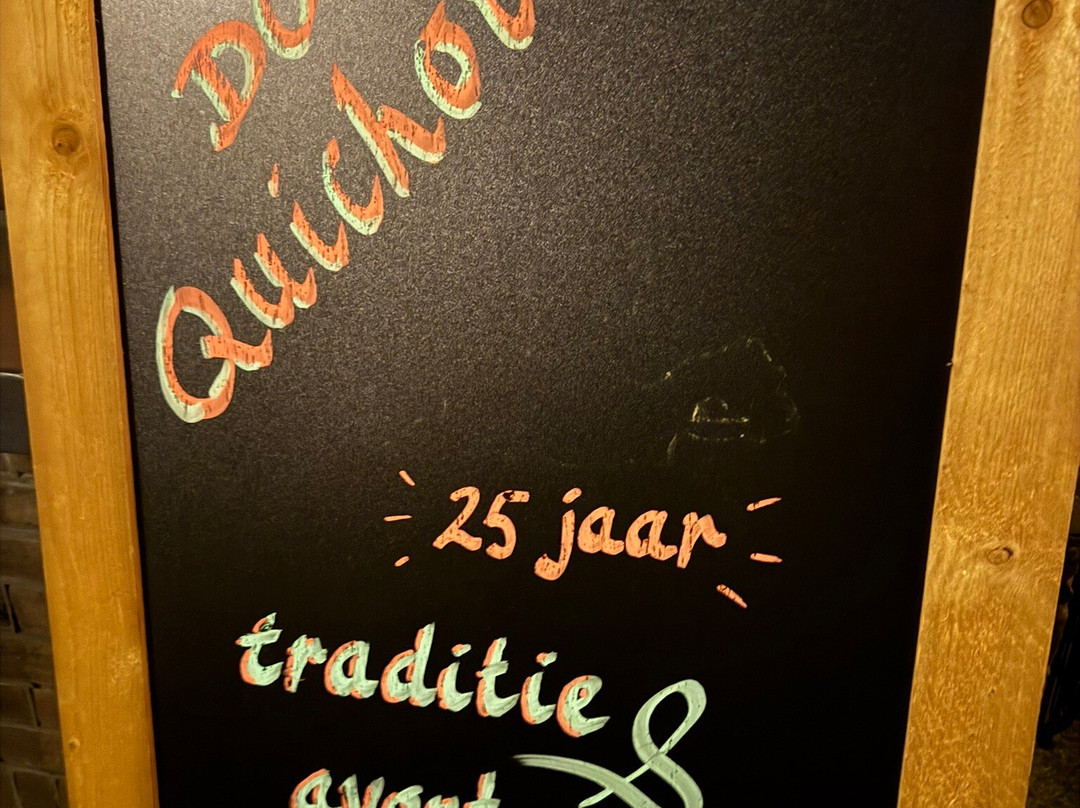 Do
Quichot
25 jaar
traditie &